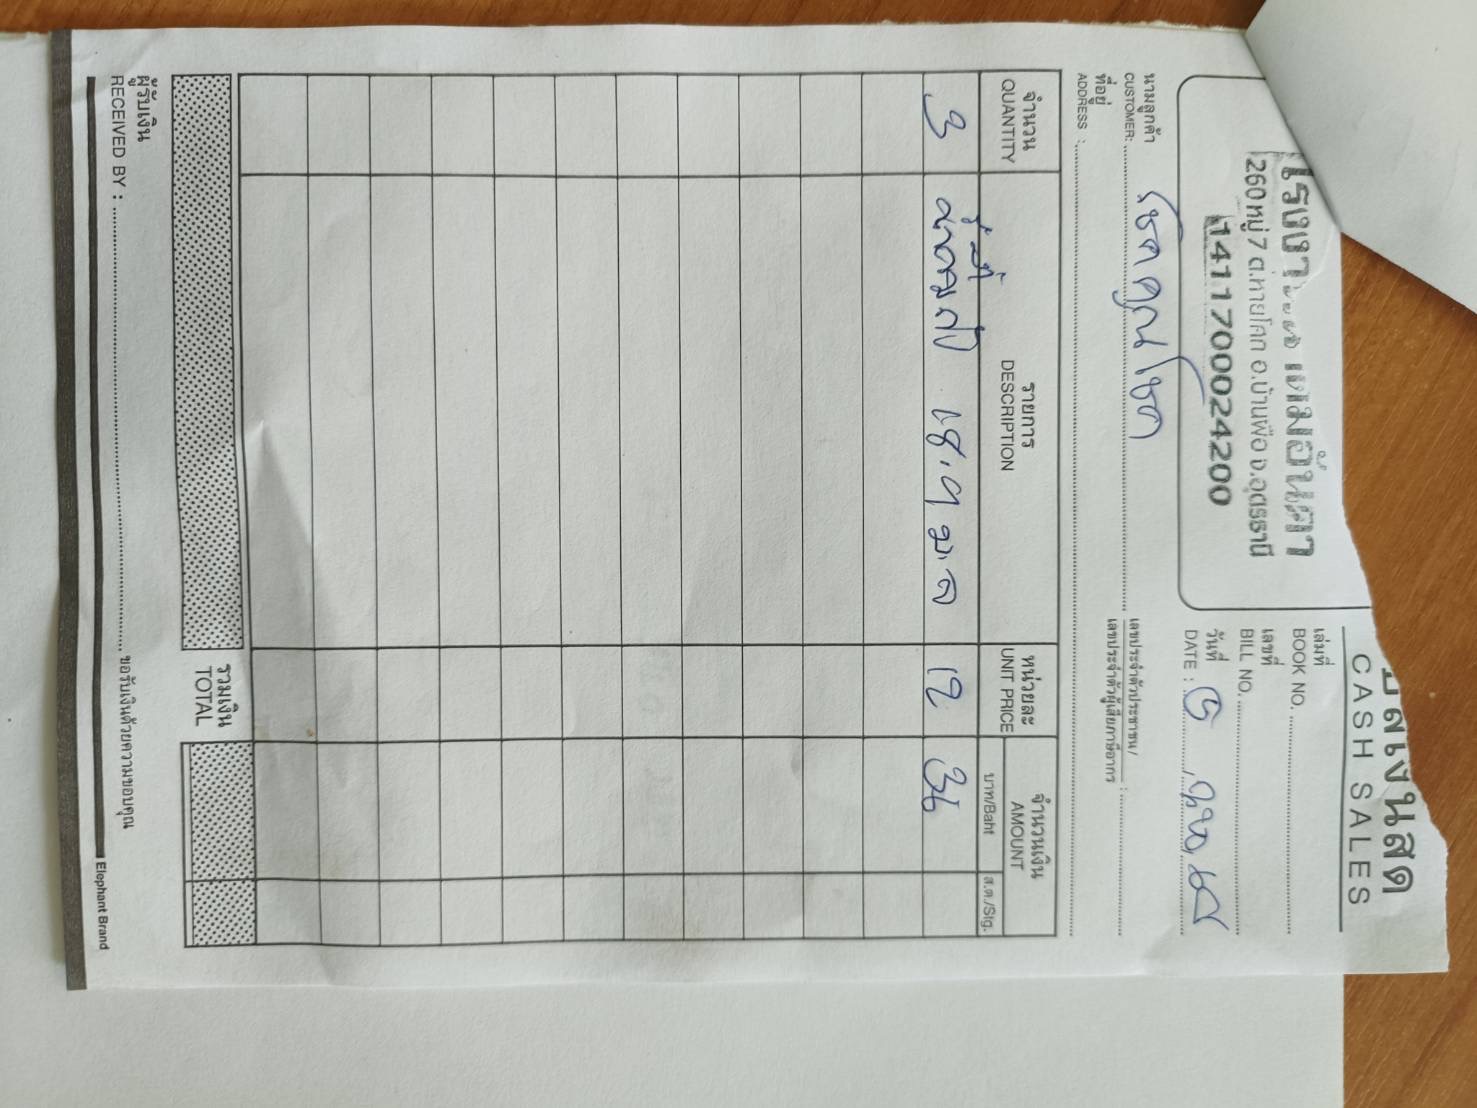 บิลเงินสด
CASH SALES
260 หมู่ 7 ต.หายโศก อ.บ้านผือ จ.อุดรธานี
1411700024200
เล่มที่
BOOK NO.
เลขที่
BILL NO.
วันที่
DATE :
นามลูกค้า
CUSTOMER: โชคคูณโชค
เลขประจำตัวประชาชน/
เลขประจำตัวผู้เสียภาษีอากร :
ที่อยู่
ADDRESS :
จำนวน รายการ หน่วยละ จำนวนเงิน
QUANTITY DESCRIPTION UNIT PRICE AMOUNT
บาท/Baht ส.ต./Stg.
3 12 36
รวมเงิน
TOTAL
ผู้รับเงิน
RECEIVED BY : ขอรับเงินด้วยความขอบคุณ
Elephant Brand